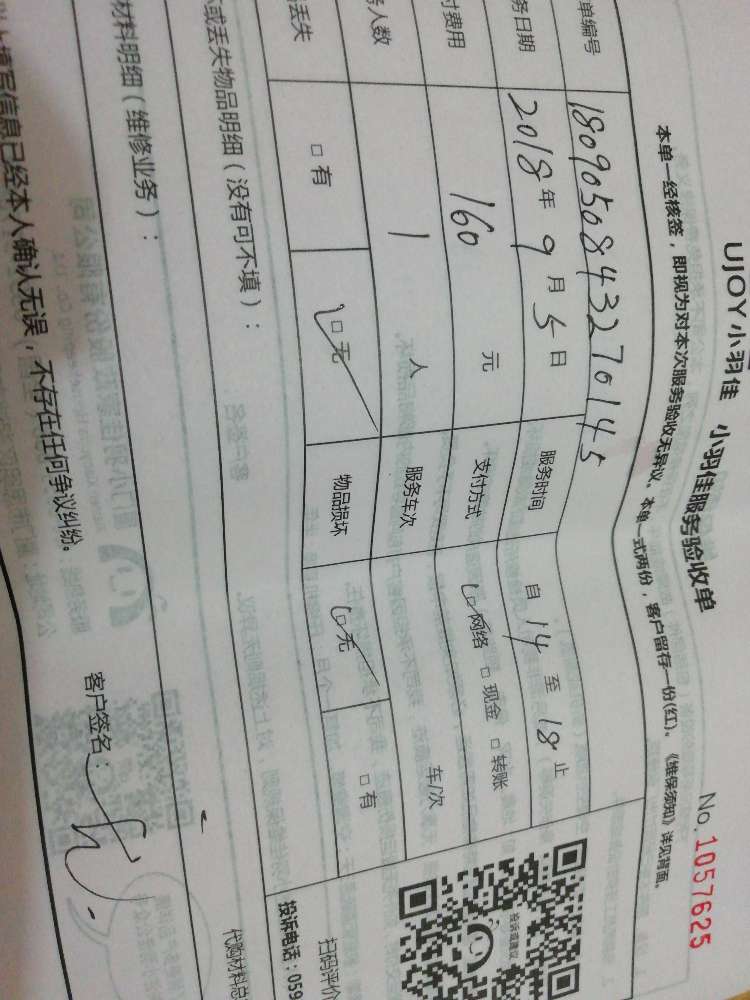 UJOY小羽佳 小羽佳服务验收单 No.1057625
本单一经核签，即视为对本次服务验收无异议。本单一式两份，客户留存一份(红)。《维保须知》详见背面。
单编号 180905084327014 5
务日期 2018年9月5日 服务时间 自14至18止
付费用 160 元 支付方式 ☑网络 □现金 □转账
务人数 1 人 服务车次 车/次
丢失 □有 ☑无 物品损坏 ☑无 □有
投诉或建议
扫码评价
投诉电话：059
或丢失物品明细（没有可不填）：
代购材料总
材料明细（维修业务）：
以上填写信息已经本人确认无误，不存在任何争议纠纷。 客户签名：